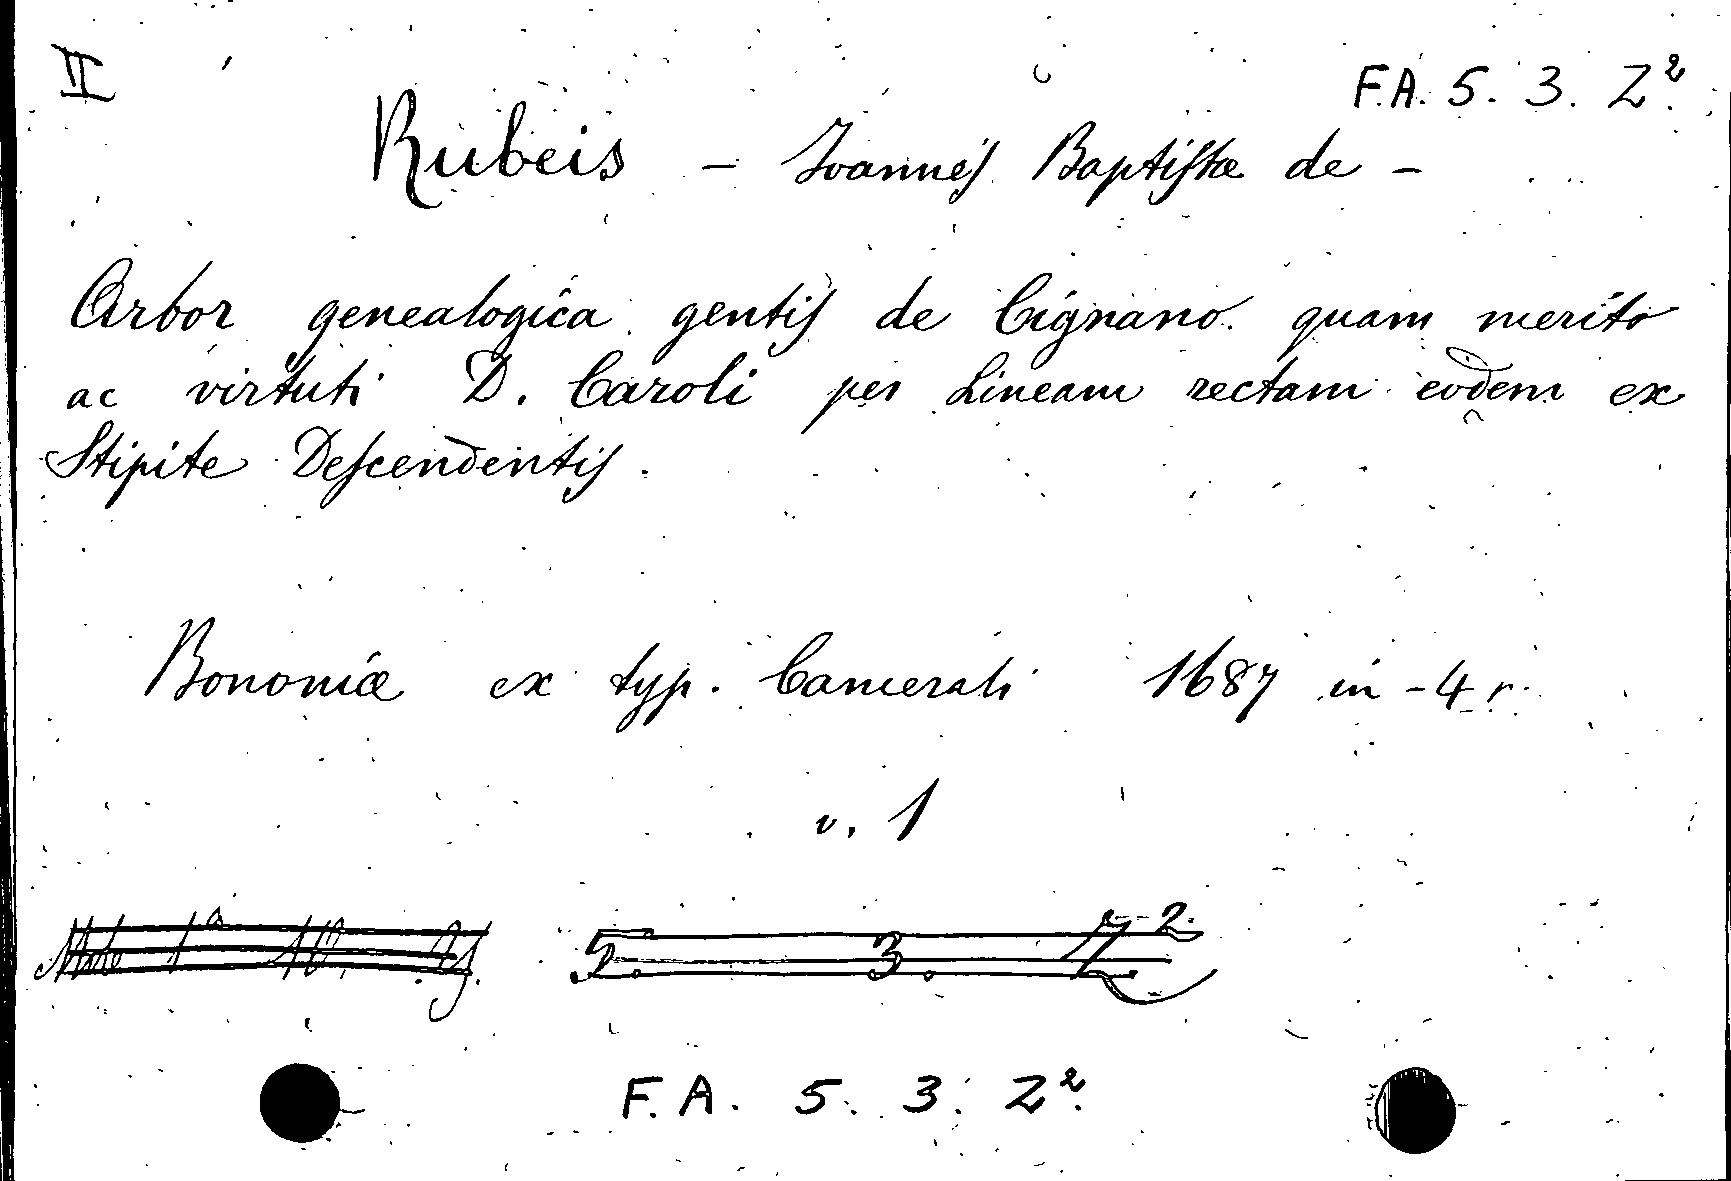 II
F.A. 5. 3. Z².
Rubeis - Ioannes Baptistæ de -
Arbor genealogica gentis de Cignano quam merito
ac virtuti D. Caroli per Lineam rectam eodem ex
Stipite Descendentis.
Bononiæ ex typ. Camerali 1687 in-4 r.
v. 1
5. 3. Z².
F.A. 5. 3. Z².